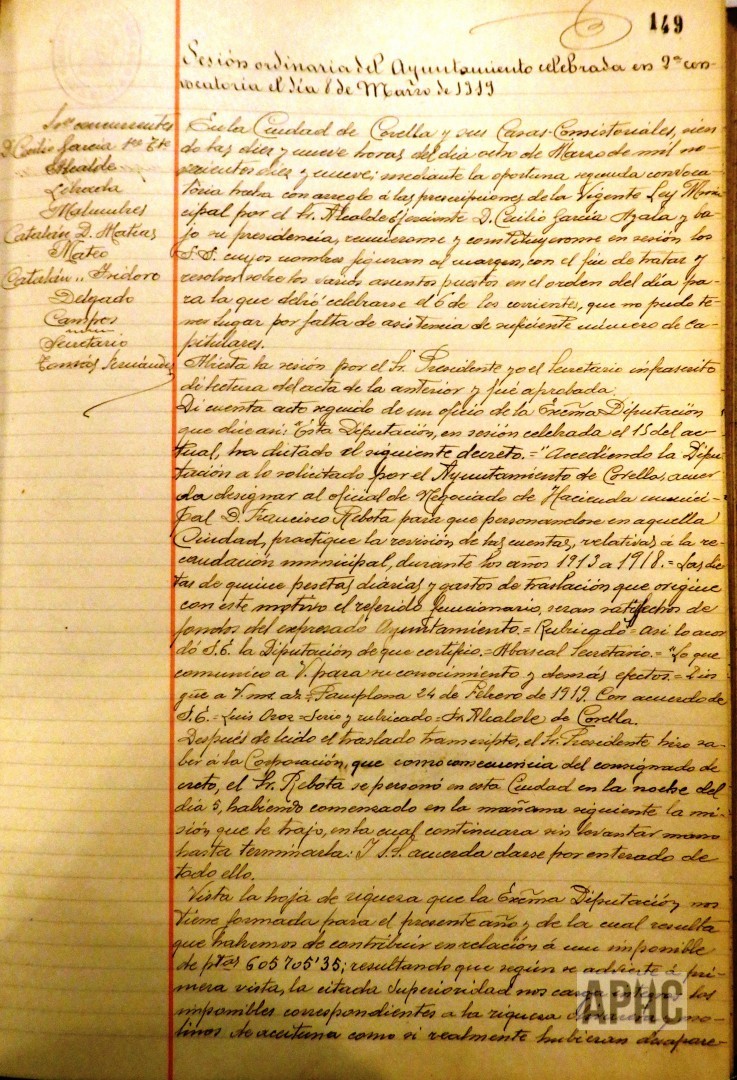 149
Sesión ordinaria del Ayuntamiento celebrada en 2ª con-
vocatoria el día 8 de Marzo de 1919
Sres concurrentes
D. Cecilio García 1er Tte
Alcalde
Labrada
Malumbres
Catalán D. Matías
Mateo
Catalán " Isidoro
Delgado
Campos
Secretario
Tomás Fernández
En la Ciudad de Corella y sus Casas-Comistoriales, sien-
do las diez y nueve horas del día ocho de Marzo de mil no-
vecientos diez y nueve; mediante la oportuna segunda convoca-
toria hecha con arreglo á las prescripciones de la Vigente Ley Muni-
cipal por el Sr. Alcalde Ejerciente D. Cecilio García Ayala y ba-
jo su presidencia, reunieronse y constituyeronse en sesión los
S.S. cuyos nombres figuran al margen, con el fin de tratar y
resolver sobre los varios asuntos puestos en el orden del día pa-
ra la que debió celebrarse el 6 de los corrientes, que no pudo te-
ner lugar por falta de asistencia de suficiente número de ca-
pitulares.
Abierta la sesión por el Sr. Presidente yo el Secretario infrascrito
di lectura del acta de la anterior y fué aprobada.
Di cuenta acto seguido de un oficio de la Excma Diputación
que dice asi: "Esta Diputación, en sesión celebrada el 15 del ac-
tual, ha dictado el siguiente decreto. = "Accediendo la Dipu-
tación a lo solicitado por el Ayuntamiento de Corella, acuer-
da designar al oficial de Negociado de Hacienda munici-
pal D. Francisco Rebota para que personandose en aquella
Ciudad, practique la revisión de las cuentas, relativas á la re-
caudación municipal, durante los años 1913 a 1918. = Las die-
tas de quince pesetas diarias y gastos de traslación que origine
con este motivo el referido funcionario, seran satisfechos de
fondos del expresado Ayuntamiento. = Rubricado = Asi lo acor-
dó S.E. la Diputación de que certifico. = Abascal Secretario. = "Lo que
comunico a V. para su conocimiento y demás efectos. = Dios
gue a V. ms. as. = Pamplona 24 de Febrero de 1919. Con acuerdo de
S.E. = Luis Oroz = Serio y rubricado = Sr. Alcalde de Corella.
Después de leido el traslado transcripto, el Sr. Presidente hizo sa-
ber á la Corporación, que como consecuencia del consignado de-
creto, el Sr. Rebota se personó en esta Ciudad en la noche del
día 5, habiendo comenzado en la mañana siguiente la mi-
sión que le trajo, en la cual continuara sin levantar mano
hasta terminarla: Y S.S. acuerda darse por enterado de
todo ello.
Vista la hoja de riqueza que la Excma Diputación nos
tiene formada para el presente año y de la cual resulta
que habremos de contribuir en relación á un imponible
de ptas 605705'35; resultando que según se advierte á pri-
mera vista, la citada Superioridad nos carga los
imponibles correspondientes a la riqueza mo-
linos de aceituna como si realmente hubieran desapare-
APHC